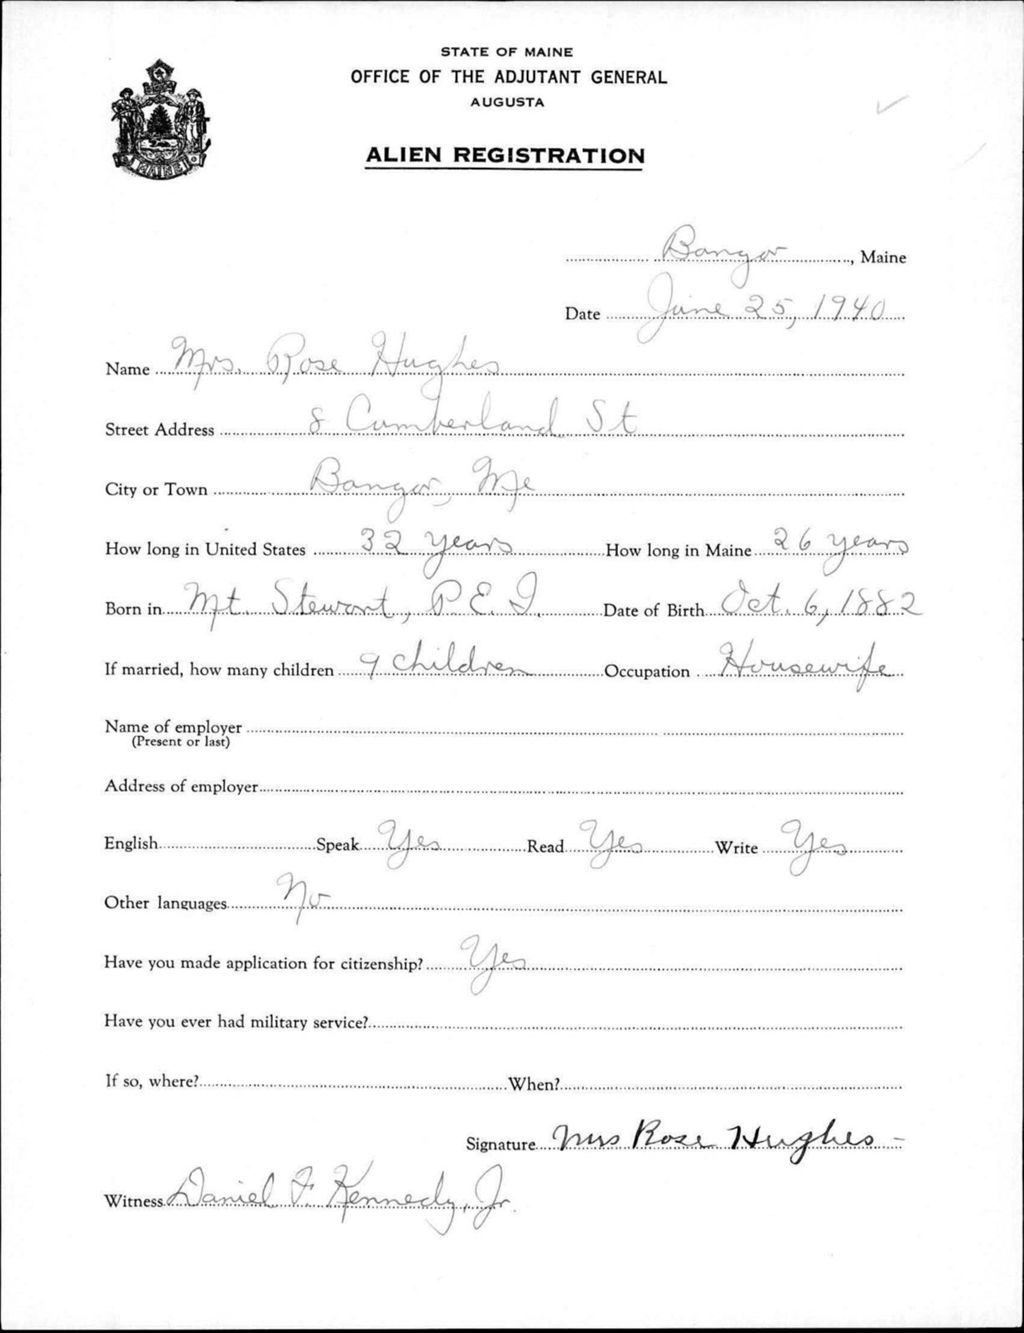 STATE OF MAINE
OFFICE OF THE ADJUTANT GENERAL
AUGUSTA
ALIEN REGISTRATION
MAINE
Bangor, Maine
Date June 25, 1940
Name Mrs. Rose Hughes
Street Address 8 Cumberland St
City or Town Bangor, Me
How long in United States 32 years How long in Maine 26 years
Born in Mt. Stewart, P.E.I. Date of Birth Oct. 6, 1882
If married, how many children 9 children Occupation Housewife
Name of employer
(Present or last)
Address of employer
English Speak Yes Read Yes Write Yes
Other languages No
Have you made application for citizenship? Yes
Have you ever had military service?
If so, where? When?
Signature Mrs Rose Hughes
Witness Daniel F. Kennedy, Jr.